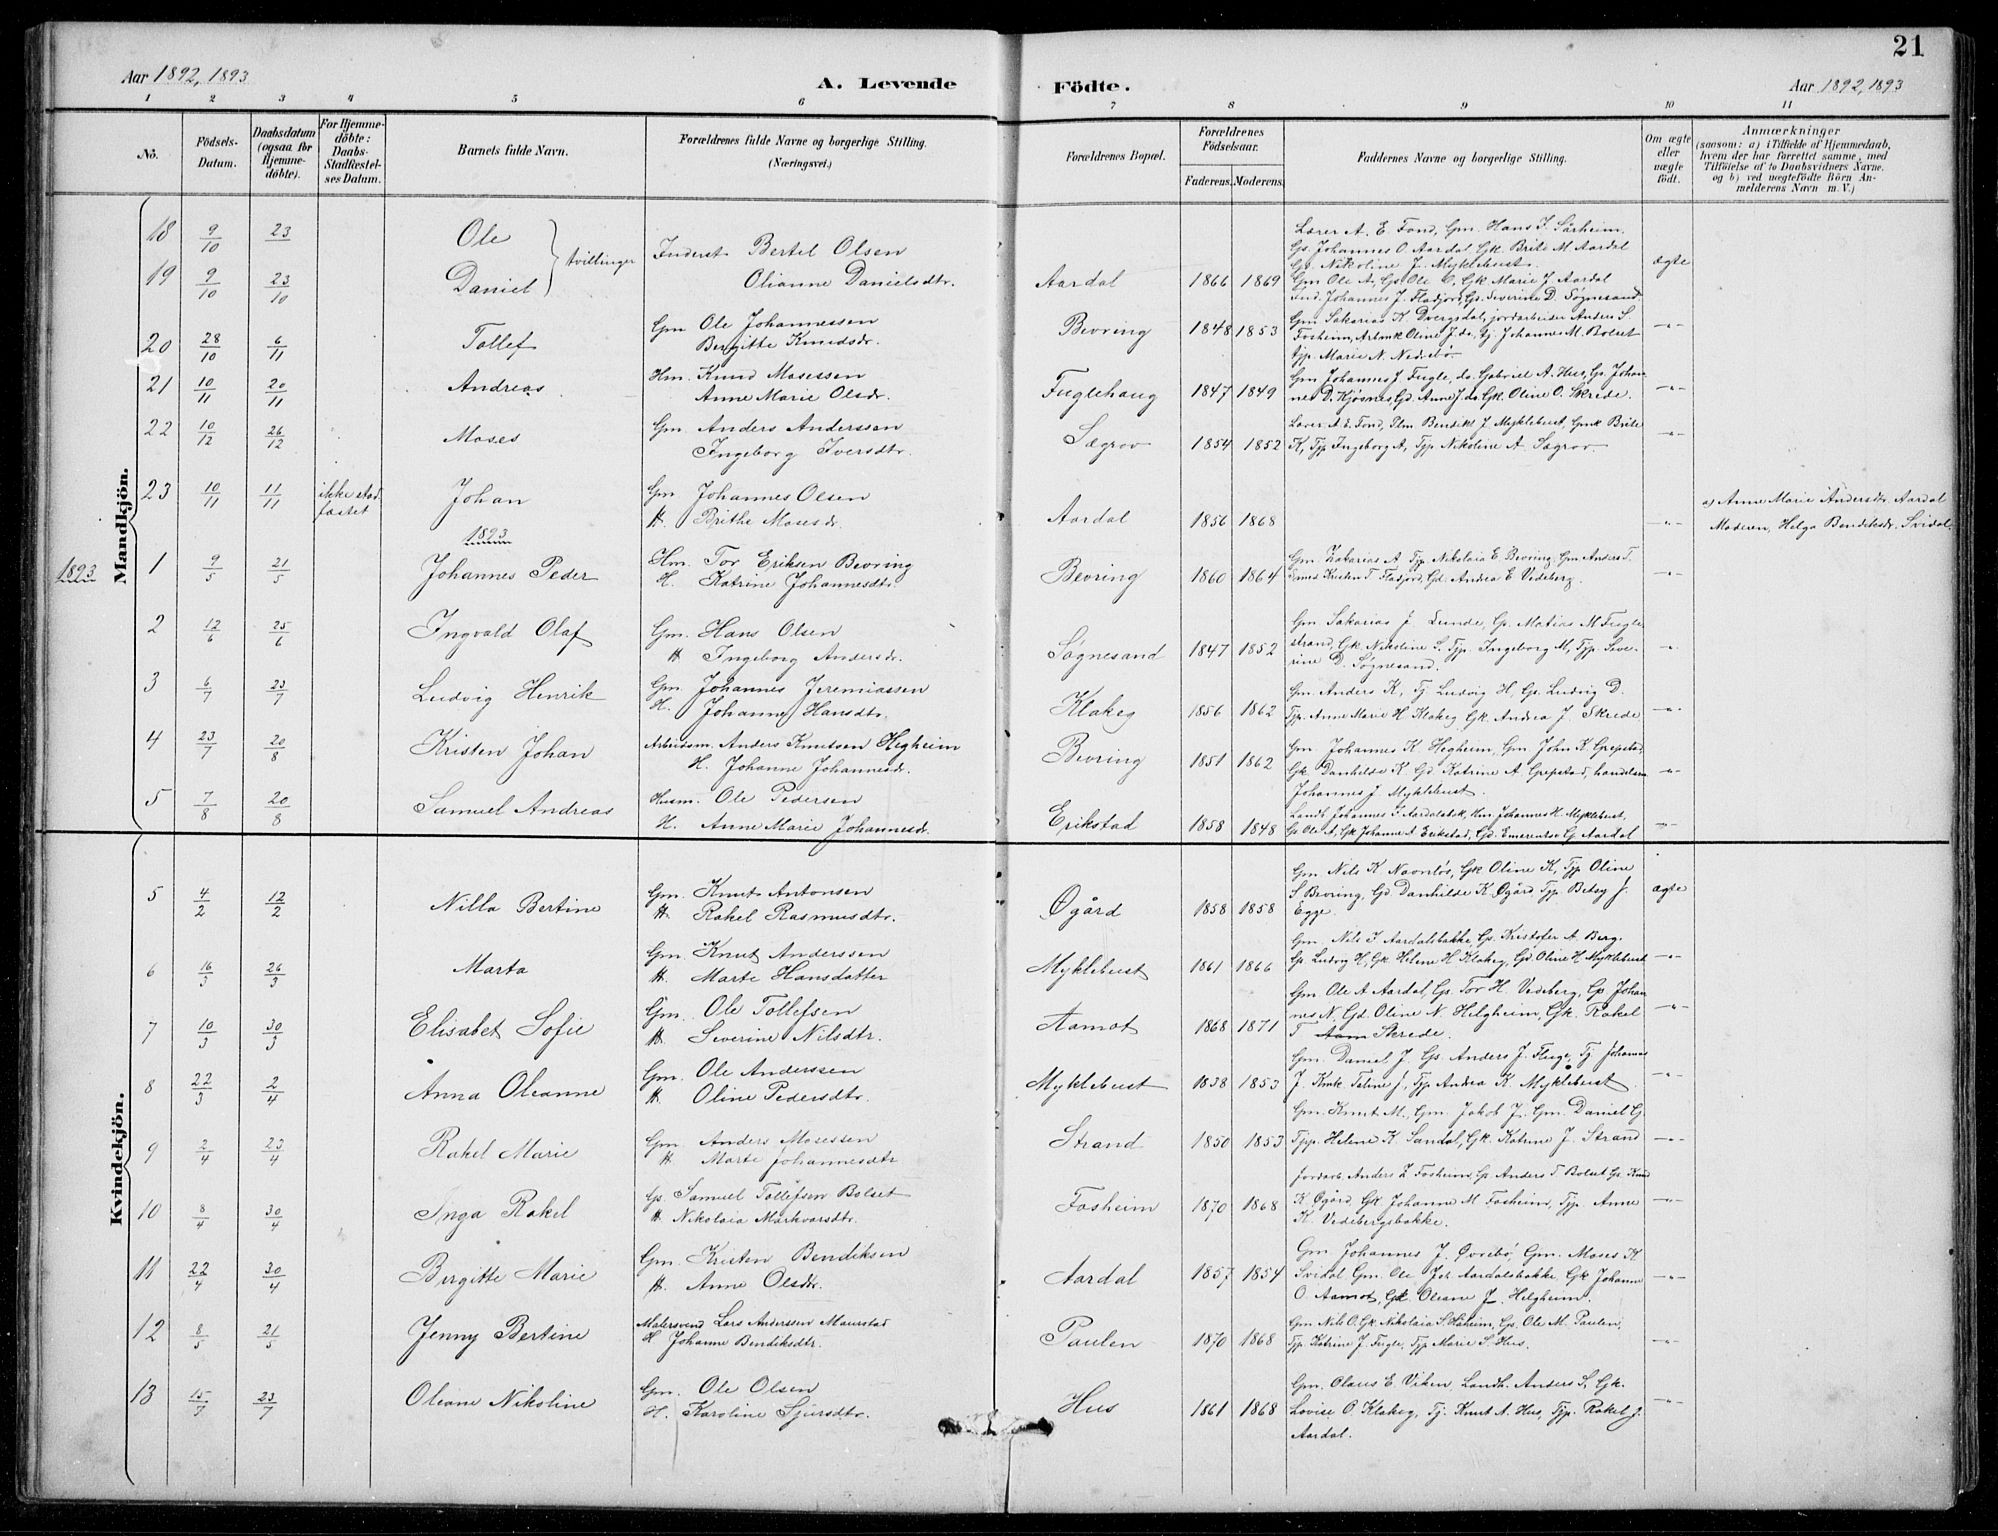 21
Aar 1892, 1893
A. Levende
Födte.
Aar 1892, 1893
1 2 3 4 5 6 7 8 9 10 11
No.
Födsels-Datum.
Daabsdatum (ogsaa for Hjemmedöbte).
For Hjemmedöbte: Daabs-Stadfæstelses Datum.
Barnets fulde Navn.
Forældrenes fulde Navne og borgerlige Stilling.
(Næringsvei.)
Forældrenes Bopæl.
Forældrenes Födselsaar.
Faderens. Moderens.
Faddernes Navne og borgerlige Stilling.
Om ægte eller uægte födt.
Anmærkninger
(saasom: a) i Tilfælde af Hjemmedaab, hvem der har forrettet samme, med Tilföielse af to Daabsvidners Navne. og b) ved uægtefödte Börn Anmelderens Navn m. V.)
Mandkjön.
18 9/10 23 Ole
tvillinger
Inderst Bertel Olsen
Lærer A. E. Fond, Gm. Hans J. Sårheim,
Gs. Johannes O Aardal Gk. Brite M Aardal
Gd. Nikoline J. Myklebust.
ægte
19 9/10 23/10 Daniel
Olianne Danielsdtr.
Aardal 1866 1869
Gm Ole A, Gs Ole O, Gk Marie J Aardal
Ind. Johannes J. Flatjord, Gd. Severine D. Søgnesand.
20 28/10 6/11 Tollef
Gm Ole Johannessen
Birgitte Knudsdr.
Bevring 1848 1853
Gm Sakarias K Dvergsdal, jordarbeider Anders S.
Fosheim, Arbmk Oline J. do, tj. Johannes M. Bolset
tjp. Marie N. Nedrebø.
-"-
21 10/11 20/11 Andreas
Hm. Knud Mosessen
Anne Marie Olsdr.
Fuglehaug 1847 1849
Gm Johannes J. Fugle, do. Gabriel A. Hus, Gs. Johan
nes D. Kjøsnes, Gd. Anne J. do. Gk. Oline O. Skrede.
-"-
22 10/12 26/12 Moses
Gm. Anders Anderssen
Ingeborg Iversdtr.
Sægrov 1854 1852
Lærer A. E. Fond, Plm Bendikt J Myklebust, Gmk Brite
K, Tjp Ingeborg A, Tjp. Nikoline A. Sægrov.
-"-
23 10/11 11/11 ikke stadfæstet
Johan
Gm Johannes Olsen
H. Brithe Mosesdr.
Aardal 1856 1868
-"-
a) Anne Marie Andersdtr. Aardal
Moderen, Helga Bendiksdr. Svidal.
1893
1893
1 9/5 21/5 Johannes Peder
Hm. Tor Eriksen Bevring
H. Katrine Johannesdtr.
Bevring 1860 1864
Gm. Zakarias A. Tjp. Nikolaia E. Bevring, Gm Anders T.
Kristen T. Flatjord, Gd. Andrea E Vedeberg.
-"-
2 12/6 25/6 Ingvald Olaf
Gm. Hans Olsen
H Ingeborg Andersdr.
Søgnesand 1847 1852
Gm Sakarias J Lunde, Gs. Matias M Fugle
strand, Gk Nikoline S. Tjp. Ingeborg M, Tjp. Seve-
rine D. Søgnesand.
-"-
3 6/7 23/7 Ludvig Henrik
Gm. Johannes Jeremiassen
H. Johanne Hansdtr.
Klakeg 1856 1862
Gm. Anders K, Tj Ludvig H, Gs. Ludvig D.
Tjp. Anne Marie H Klakeg Gk. Andrea J. Skrede
-"-
4 23/7 20/8 Kristen Johan
Arbeidsm. Anders Knutsen Hegheim
H. Johanne Johannesdr.
Bevring 1851 1862
Gm. Johannes K Hegheim, Gm. John K. Grepstad,
Gk Danhilde K Gd Katrine A. Grepstad, handelsm
Johannes J. Myklebust.
-"-
5 7/8 20/8 Samuel Andreas
Husm. Ole Pedersen
H. Anne Marie Johannesdr.
Erikstad 1858 1848
Landh. Johannes J. Aardalsbk, Hm Johannes H. Myklebust,
Gs Ole A, Gk Johanne A Erikstad, Gd. Emerentse G. Aardal
-"-
Kvindekjön.
5 4/2 12/2 Nilla Bertine
Gm. Knut Antonsen
H. Rakel Rasmusdtr.
Øgård 1858 1858
Gm. Nils K Navnløs, Gk Oline K, Tjp Oline
S Bevring, Gd Danhilde K. Øgård Tjp Betsy J.
Egge.
ægte
6 16/3 26/3 Marta
Gm. Knut Anderssen
H. Marte Hansdatter
Myklebust 1861 1866
Gm Nils J. Aardalsbakke, Gs. Kristofer A. Berg.
Gs. Ludvig H, Gk Helene H Klakeg, Gd. Oline H Myklebust
-"-
7 10/3 30/3 Elisabet Sofie
Gm. Ole Tollefsen
H. Severine Nilsdtr.
Aamot 1868 1871
Gm. Ole A Aardal, Gs. Tor H. Vedeberg, Gs Johan
nes N. Gd. Oline N. Helgheim, Gk. Rakel
T Skrede.
-"-
8 22/3 2/4 Anna Oleanne
Gm. Ole Anderssen
H. Oline Pedersdtr.
Myklebust 1838 1853
Gm. Daniel J. Gs. Anders J. Fluge, Tj Johannes
J. Kmk Taline J, Tjp Andrea K. Myklebust
-"-
9 2/4 23/4 Rakel Marie
Gm Anders Mosessen
H Marte Johannesdtr
Strand 1850 1853
Gm. Knut M., Gm. Jakob J. Gm. Daniel G.
Tjp. Helene K Sandal, Gk. Katrine J. Strand
-"-
10 8/4 30/4 Inga Rakel
Gs. Samuel Tollefsen Bolset
H Nikolaia Markvorsdtr.
Fosheim 1870 1868
Jordarb. Anders Z Fosheim, Gs Anders T Bolset Gs. Knud
K. Øgård, Gk Johanne M Fosheim, Tjp. Anne
K. Vedebergsbakke.
-"-
11 22/4 30/4 Birgitte Marie
Gm. Kristen Bendiksen
H. Anne Olsdtr.
Aardal 1857 1854
Gm. Johannes J. Øvrebø, Gm. Moses K
Svidal, Gm. Ole Joh. Aardalsbakke, Gk Johanne
O. Aamot, Gk. Oleane J. Helgheim.
-"-
12 8/5 21/5 Jenny Bertine
Malersvend Lars Anderssen Maurstad
H Johanne Bendiksdtr.
Paulen 1870 1868
Gm Nils O. Gk. Nikolaia S. Håheim, Gs. Ole M. Paulen,
Tjp. Katrine J. Fugle, Tjp Marie S. Hus.
-"-
13 15/7 23/7 Oleane Nikoline
Gm. Ole Olsen
H. Karoline Sjursdtr.
Hus 1861 1868
Gm. Olaus E. Viken, Landh. Anders S, Gk.
Lovise O. Klakeg, Tj. Knut A. Hus, Tjp. Rakel J.
Aardal.
-"-